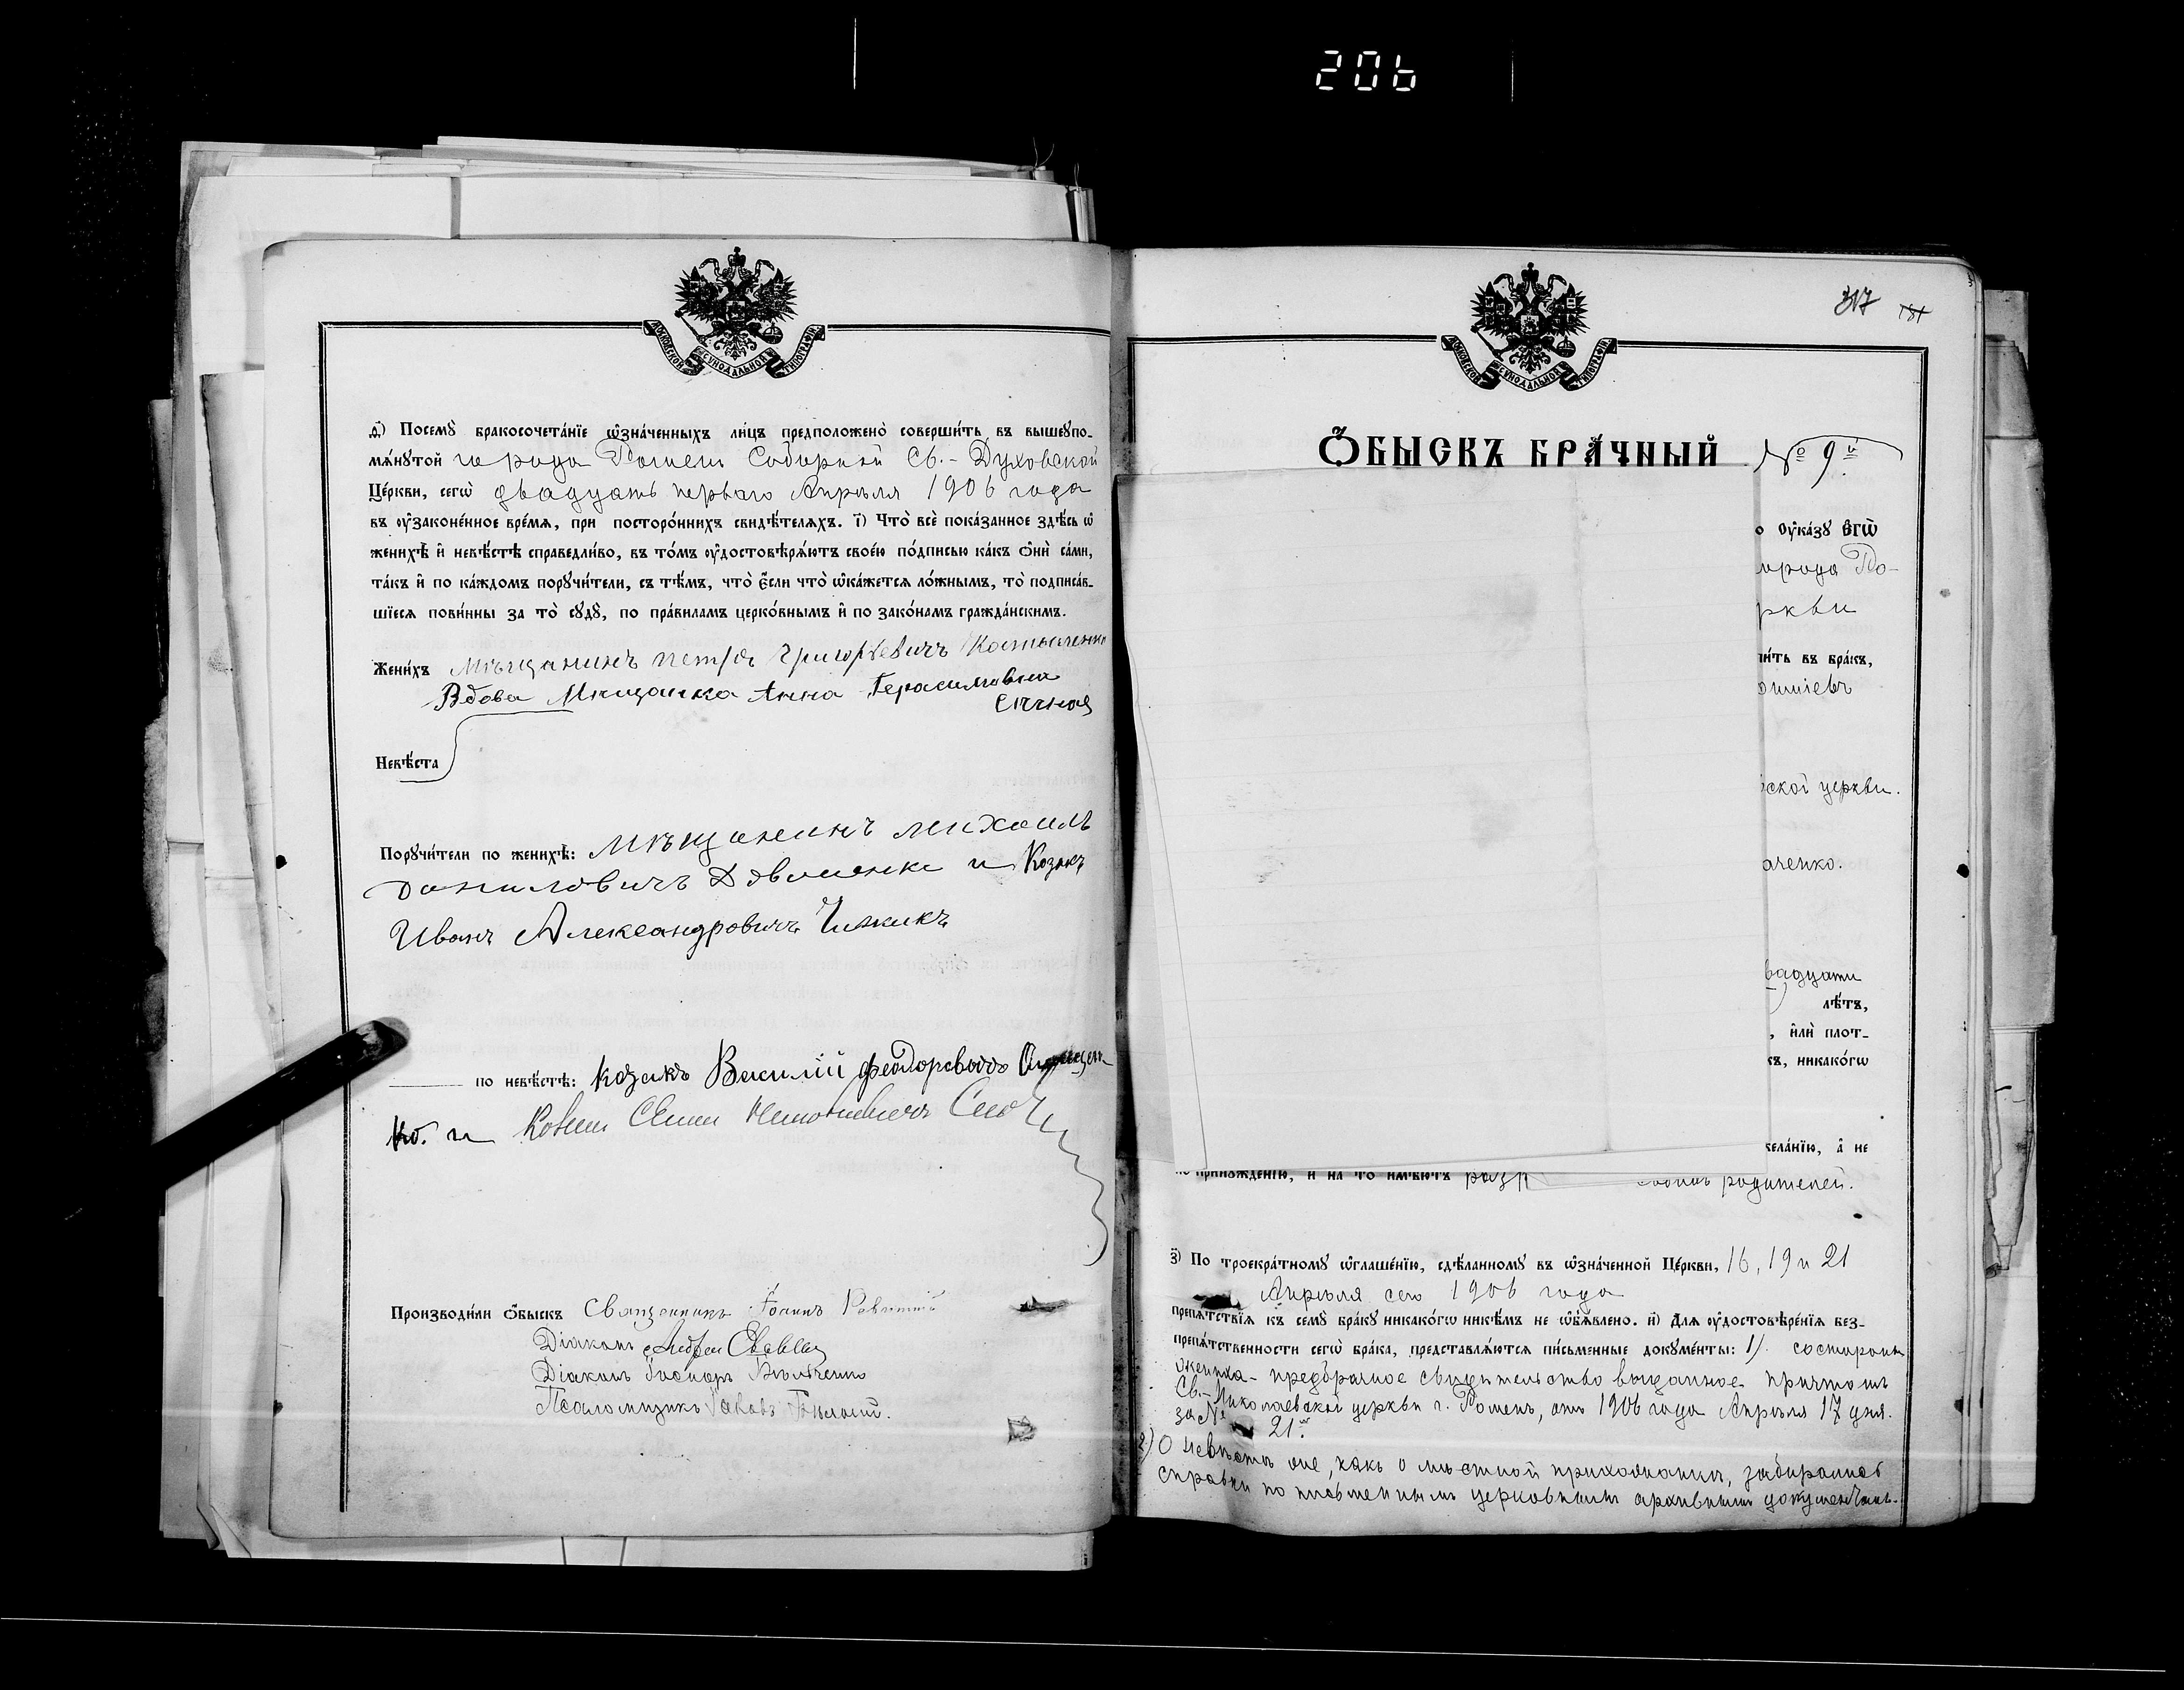 206
МОСКОВСКОЙ СѴНОДАЛЬНОЙ ТИПОГРАФІИ
д҃) Посемꙋ бракосочета́нїе ѡ҆зна́ченныхъ ли́цъ предположено̀ соверши́ть въ вышеꙋпо-
мѧ́нꙋтой города Ромен Соборной Св.-Духовской
Це́ркви, сегѡ̀ двадцать перваго Апрѣля 1906 года
въ ᲂу҆законе́нное вре́мѧ, при посторо́ннихъ свидѣ́телѧхъ. і҃) Что̀ всѐ пока́занное здѣ́сь ѡ҆
женихѣ̀ и҆ невѣ́стѣ справедли́во, въ то́мъ ᲂу҆достовѣрѧ́ютъ свое́ю по́дписью ка́къ ѻ҆нѝ са́ми,
та́къ и҆ по ка́ждомъ порꙋчи́тели, съ тѣ́мъ, что̀ є҆́сли что̀ ѡ҆ка́жетсѧ ло́жнымъ, то̀ подписа́в-
шїесѧ пови́нны за то̀ сꙋдꙋ̀, по пра́виламъ церко́внымъ и҆ по зако́намъ гражда́нскимъ.
Жени́хъ Мѣщанинъ петръ Григорьевичъ
Вдова Мищанка Анна Герасимовна
Невѣ́ста
Порꙋчи́тели по женихѣ̀: Мѣщанинъ Михаилъ
Даниловичъ и Козакъ
Иванъ Александровичъ Чижикъ
по невѣ́стѣ: козакъ Василій Феодоровичъ
ко. и
Производи́ли ѻ҆́быскъ Священникъ Іоаннъ
Діаконъ Андрей
Діаконъ
Псаломщикъ Іаковъ
317 181
МОСКОВСКОЙ СѴНОДАЛЬНОЙ ТИПОГРАФІИ
Ѻ҆́БЫСКЪ БРА́ЧНЫЙ № 9й
о ᲂу҆ка́зꙋ Є҆гѡ̀
города Ро-
ркви
пи́ть въ бра́къ,
ской церкви.
аченко.
вадцати
лѣ́тъ,
, и҆лѝ плот-
къ, никако́гѡ
жела́нїю, а҆ не
по принꙋжде́нїю, и҆ на то̀ имѣ́ютъ разр родителей.
з҃) По троекра́тномꙋ ѡ҆глаше́нїю, сдѣ́ланномꙋ въ ѡ҆зна́ченной Це́ркви, 16, 19 и 21
Апрѣля сего 1906 года
препѧ́тствїѧ къ семꙋ̀ бра́кꙋ никако́гѡ никѣ́мъ не ѡ҆б̾ѧ́влено. и҃) Длѧ ᲂу҆достовѣре́нїѧ без-
препѧ́тственности сегѡ̀ бра́ка, представлѧ́ютсѧ пи́сьменные докꙋме́нты: 1). со стороны
жениха- предбрачное свидѣтельство выданное причтомъ
Св.-Николаевской церкви г. Роменъ, отъ 1906 года Апрѣля 17 дня.
за № 21м.
2) О невѣстѣ же, какъ о мѣстной прихожанкѣ, забирались
справки по письменнымъ церковнымъ архивнымъ документамъ.